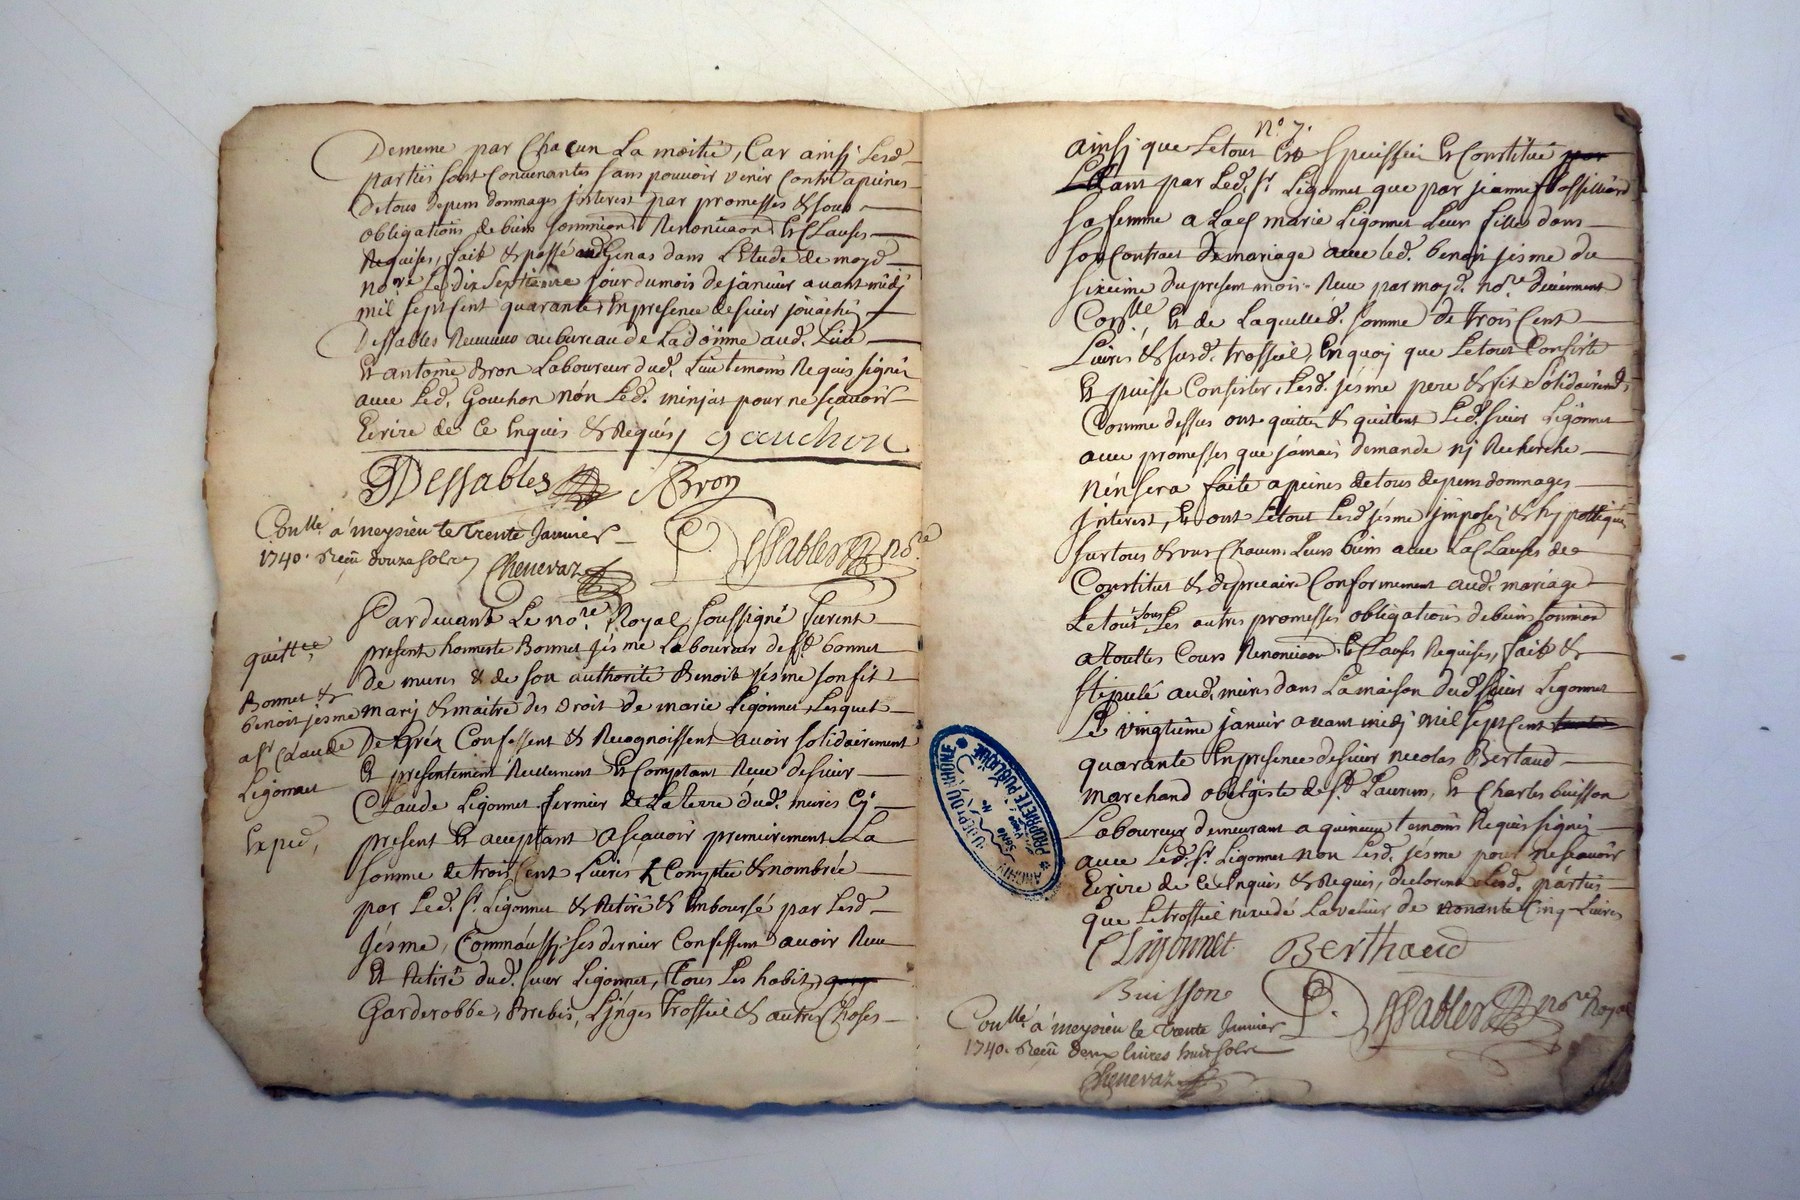 Dememe par Chacun La moitié, Car ainsj Lesd
parties sont Convenantes sans pouvoir venir Contre apeines
detous depens dommages jnterest par promesses & sous
obligations de biens Soumission Renonciaon Et Clauses
Requises, fait & passé aud Genas dans L'Etude de moyd
no.re Le dix Septieme jour du mois de janvier avant midj
mil sept Cent quarante, En presence de sieur
Dessables au bureau de La doüane aud. Lieu
Et antoine Bron Laboureur dud. Lieu temoins Requis signés
avec Led. Gouchon nón Led. minjat pour ne sçavoir
Ecrire de Ce Enquis & Requis, gouchon
Dessables Bron
Con.lle a meysieu le trente Janvier
1740. Reçü douze sols Chenevaz
Dessables no.re
Pardevant Le no.re Royal, soussigné furent
quitt.ce
present honneste Bonnet jésme Laboureur de S.t bonnet
de mures & de son authorité Benoit jésme son fils
Bonnet &
benoit jesme
marj & maitre des Droit de marie Ligonnet, Lesquels
a S.r Claude
Ligonnet
De gréz Confessent & Recognoissent avoir solidairement
Et presentement Reellement Et Comptant Receu de sieur
Claude Ligonnet fermier de La terre dud. mures Cy
Exped.
present Et acceptant a sçavoir premierement La
somme de trois Cent Livres Comptée & nombrée
par Led. S.r Ligonnet & Retiré & Emboursé par Lesd
jésme, Comm'aussj Ces dernier Confessent avoir Receu
Et Retiré dud. sieur Ligonnet, tous Les habits,
Garderobbe, Brebis, Linges trossel & autres Choses
n.o 7.
ainsj que Letout Est Speciffié Et Constitué par
tant par Led. S.r Ligonnet que par jeanne
sa femme a Lad marie Ligonnet Leur fille dans
son Contract de mariage avec led. benoit jésme du
sixieme du present mois Receu par moyd. no.re deüement
Con.lle, Et de Laquelled. somme de trois Cent
Livres & susd. trossel, En quoj que Letout Consiste
Et puisse Consister, Lesd. jésme pere & fils Solidairem.t
Comme dessus ont quitté & quittent Led. sieur Ligonnet
avec promesses que jamais demande nj Recherche
n'en sera faite a peines de tous depens dommages
jnterest, Et ont Letout Lesd jésme jmposé & hypotéqué
sur tous & un Chacun Leurs biens avec La Clauses de
Constitut & de precaire Conformement aud. mariage
Letout sous Les autres promesses obligations de biens soumissions
a touttes Cours Renonciaon & Clauses Requises, fait &
stipulé aud. mures dans La maison dud. sieur Ligonnet
Le vingtieme janvier avant midj mil sept Cent
quarante En presence de sieur nicolas Bertaud
marchand de S.t Laurens, Et Charles buisson
Laboureur demeurant a temoins Requis signés
avec Led. S.r Ligonnet non Lesd. jésme pour ne scavoir
Ecrire de Ce Enquis & Requis, declarent Lesd. parties
que Le trossel n'excede La valeur de nonante Cinq Livres
C Ligonnet Berthaud
Buisson Dessables no.re Royal
Con.lle a meysieu le trente Janvier
1740. Reçü deux livres huit sols
Chenevaz
PROPRIÉTÉ PUBLIQUE